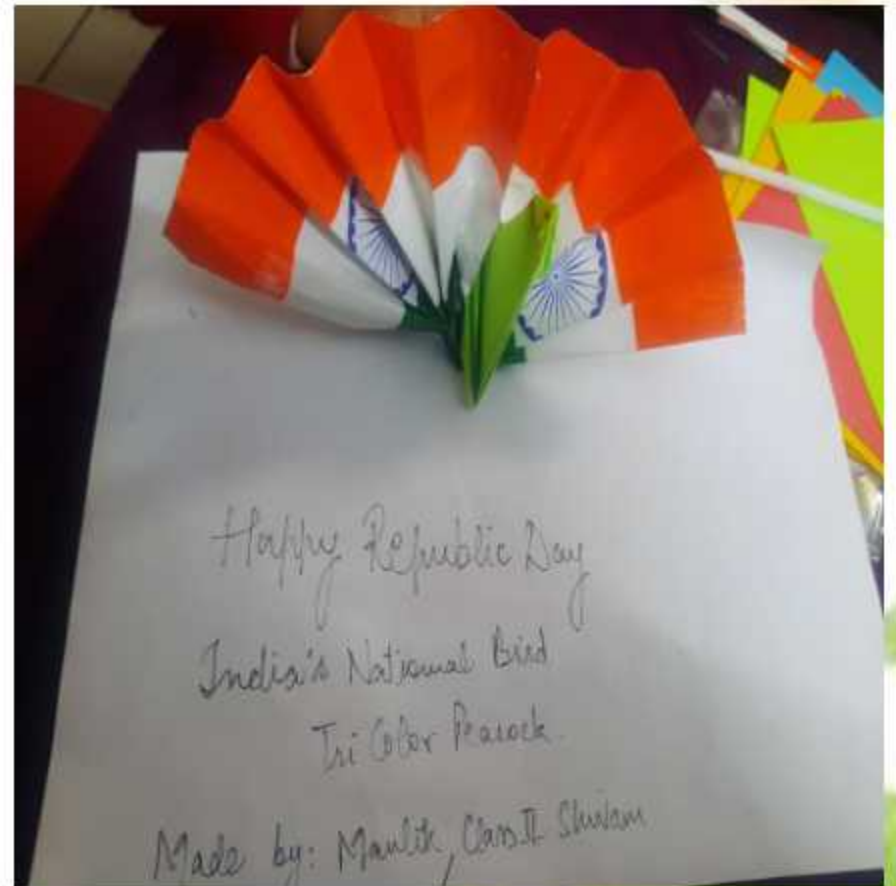 Happy Republic Day
India's National Bird
Tri Color Peacock.
Made by: Maulik, Class II Shivam